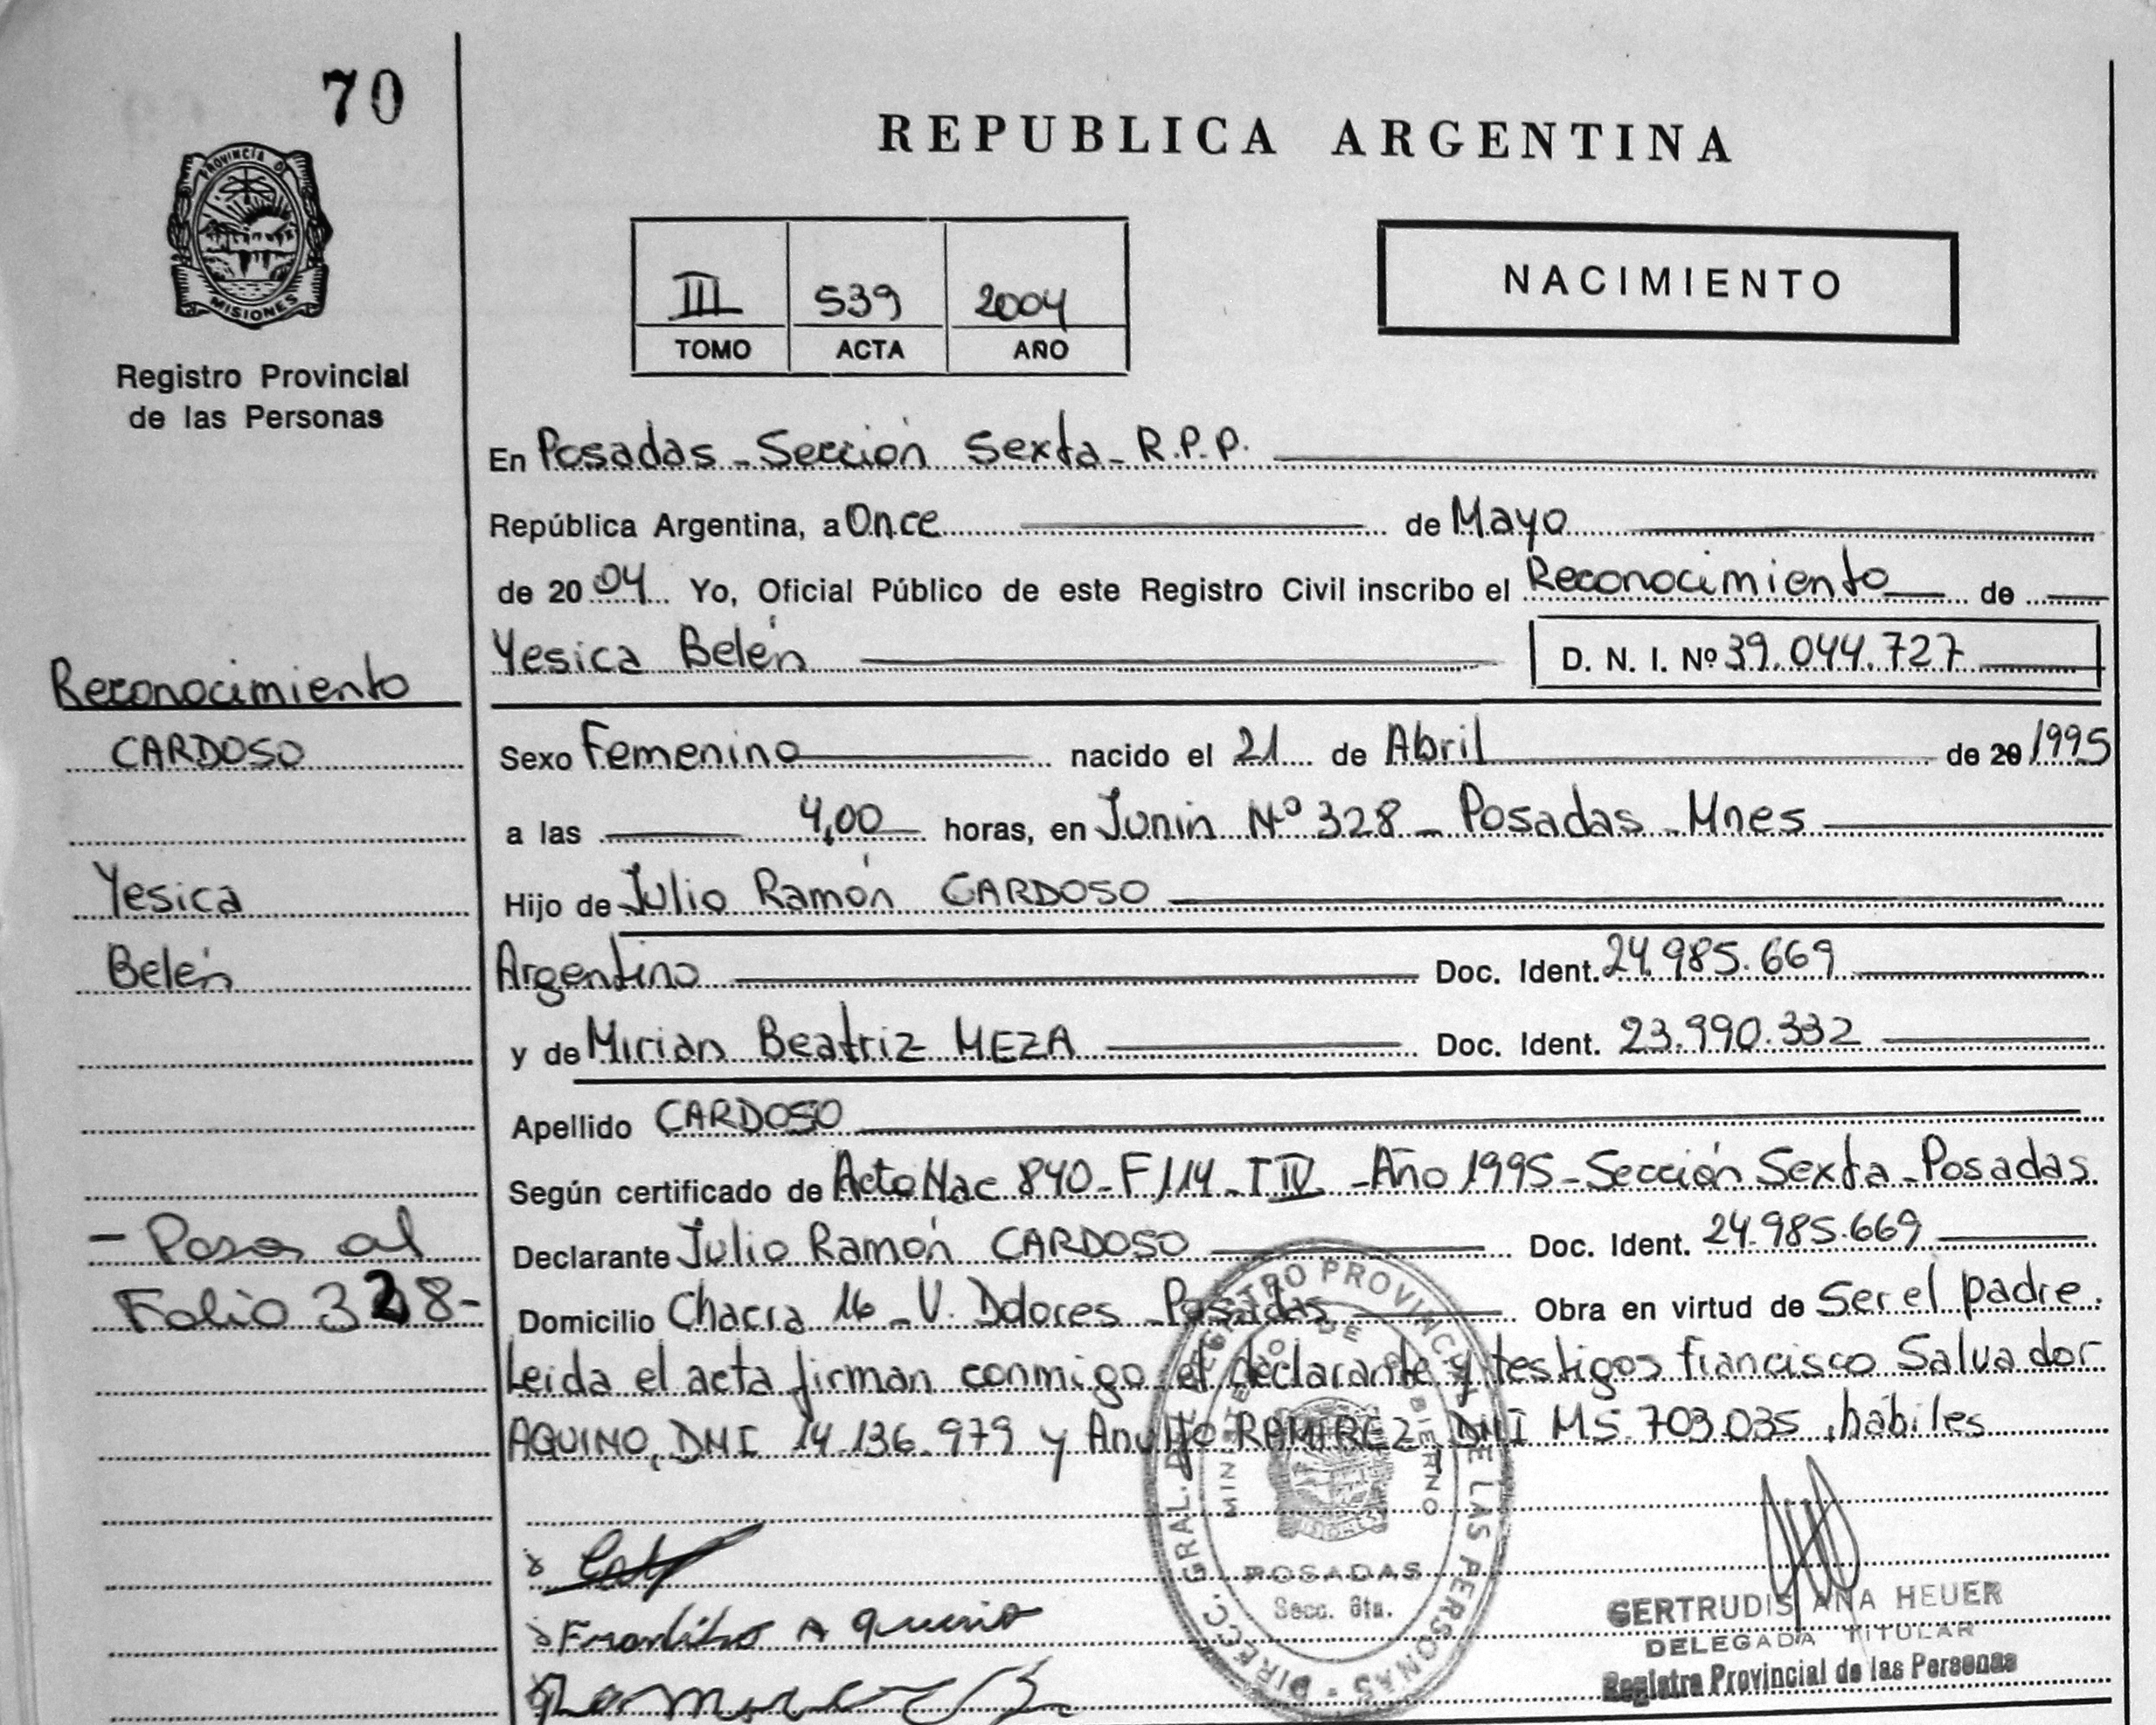 70
REPUBLICA ARGENTINA
PROVINCIA DE
MISIONES
Registro Provincial
de las Personas
III 539 2004
TOMO ACTA AÑO
NACIMIENTO
En Posadas - Sección Sexta - R.P.P.
República Argentina, a Once de Mayo
de 2004 Yo, Oficial Público de este Registro Civil inscribo el Reconocimiento de
Yesica Belén D. N. I. Nº 39.044.727
Reconocimiento
CARDOSO
Yesica
Belén
- Pasa al
Folio 328-
Sexo Femenino nacido el 21 de Abril de 20 1995
a las 4,00 horas, en Junin Nº 328 - Posadas - Mnes
Hijo de Julio Ramón CARDOSO
Argentino Doc. Ident. 24.985.669
y de Mirian Beatriz MEZA Doc. Ident. 23.990.332
Apellido CARDOSO
Según certificado de Acta Nac 840 - F 114 - T IV - Año 1995 - Sección Sexta - Posadas
Declarante Julio Ramón CARDOSO Doc. Ident. 24.985.669
Domicilio Chacra 16 - V. Dolores - Posadas Obra en virtud de Ser el padre.
Leida el acta firman conmigo el declarante y testigos francisco Salvador
AQUINO, DNI 14.136.979 y RAMIREZ, DNI M5.703.035, hábiles
DIRECC. GRAL. DEL REGISTRO PROVINCIAL DE LAS PERSONAS
MINISTERIO DE GOBIERNO
POSADAS
Secc. 6ta.
GERTRUDIS ANA HEUER
DELEGADA TITULAR
Registro Provincial de las Personas